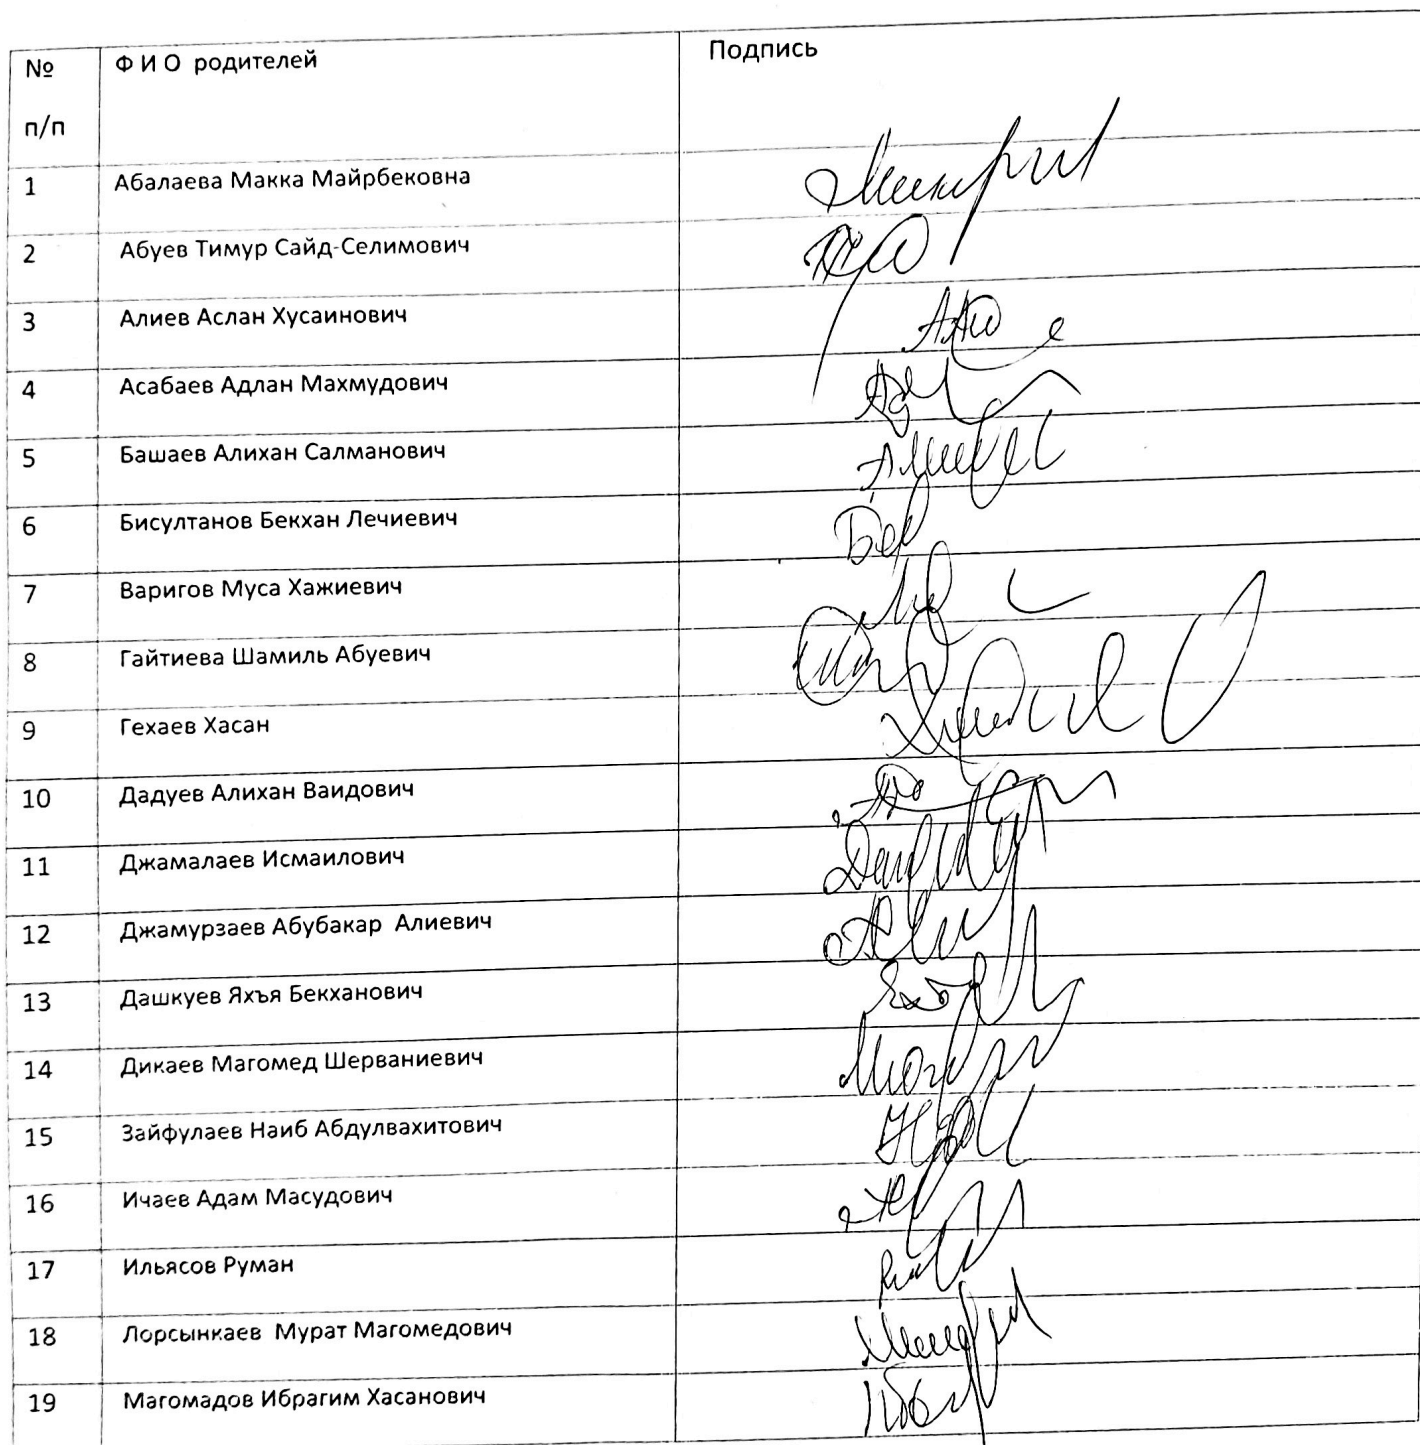 № Ф И О родителей Подпись
п/п
1 Абалаева Макка Майрбековна
2 Абуев Тимур Сайд-Селимович
3 Алиев Аслан Хусаинович
4 Асабаев Адлан Махмудович
5 Башаев Алихан Салманович
6 Бисултанов Бекхан Лечиевич
7 Варигов Муса Хажиевич
8 Гайтиева Шамиль Абуевич
9 Гехаев Хасан
10 Дадуев Алихан Ваидович
11 Джамалаев Исмаилович
12 Джамурзаев Абубакар Алиевич
13 Дашкуев Яхъя Бекханович
14 Дикаев Магомед Шерваниевич
15 Зайфулаев Наиб Абдулвахитович
16 Ичаев Адам Масудович
17 Ильясов Руман
18 Лорсынкаев Мурат Магомедович
19 Магомадов Ибрагим Хасанович